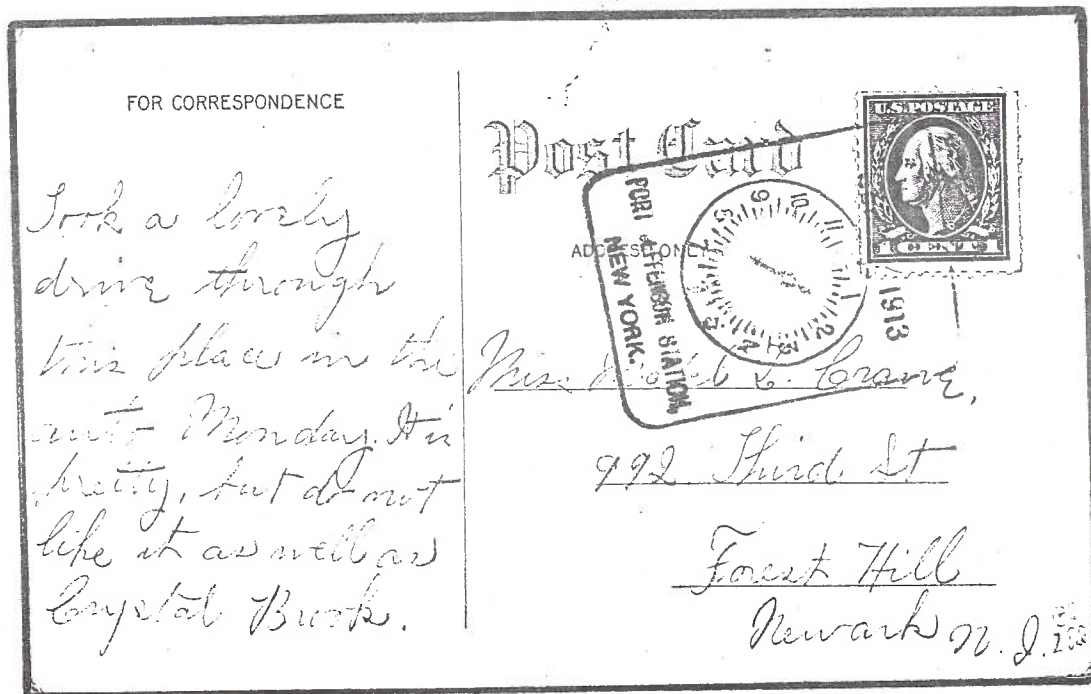 FOR CORRESPONDENCE
Took a lovely
drive through
this place in the
auto Monday. It is
pretty, but do not
like it as well as
Crystal Brook.
Post Card
ADDRESS ONLY
U.S. POSTAGE
1 CENT 1
PORT JEFFERSON STATION,
NEW YORK.
1913
9 10 11 1 2 3 4
Miss L. Crane,
992 Third St
Forest Hill
Newark N. J.